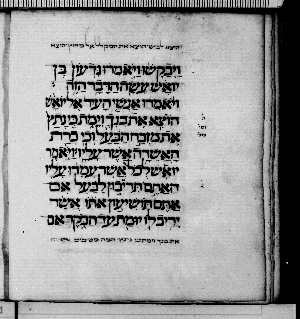 ויבקשו ויאמרו גדעון בן
יואש עשה הדבר הזה
ויאמרו אנשי העיר אל יואש
הוצא את בנך וימת כי נתץ
את מזבח הבעל וכי כרת
האשרה אשר עליו ויאמר
יואש לכל אשר עמדו עליו
האתם תריבון לבעל אם
אתם תושיעון אתו אשר
יריב לו יומת עד הבקר אם